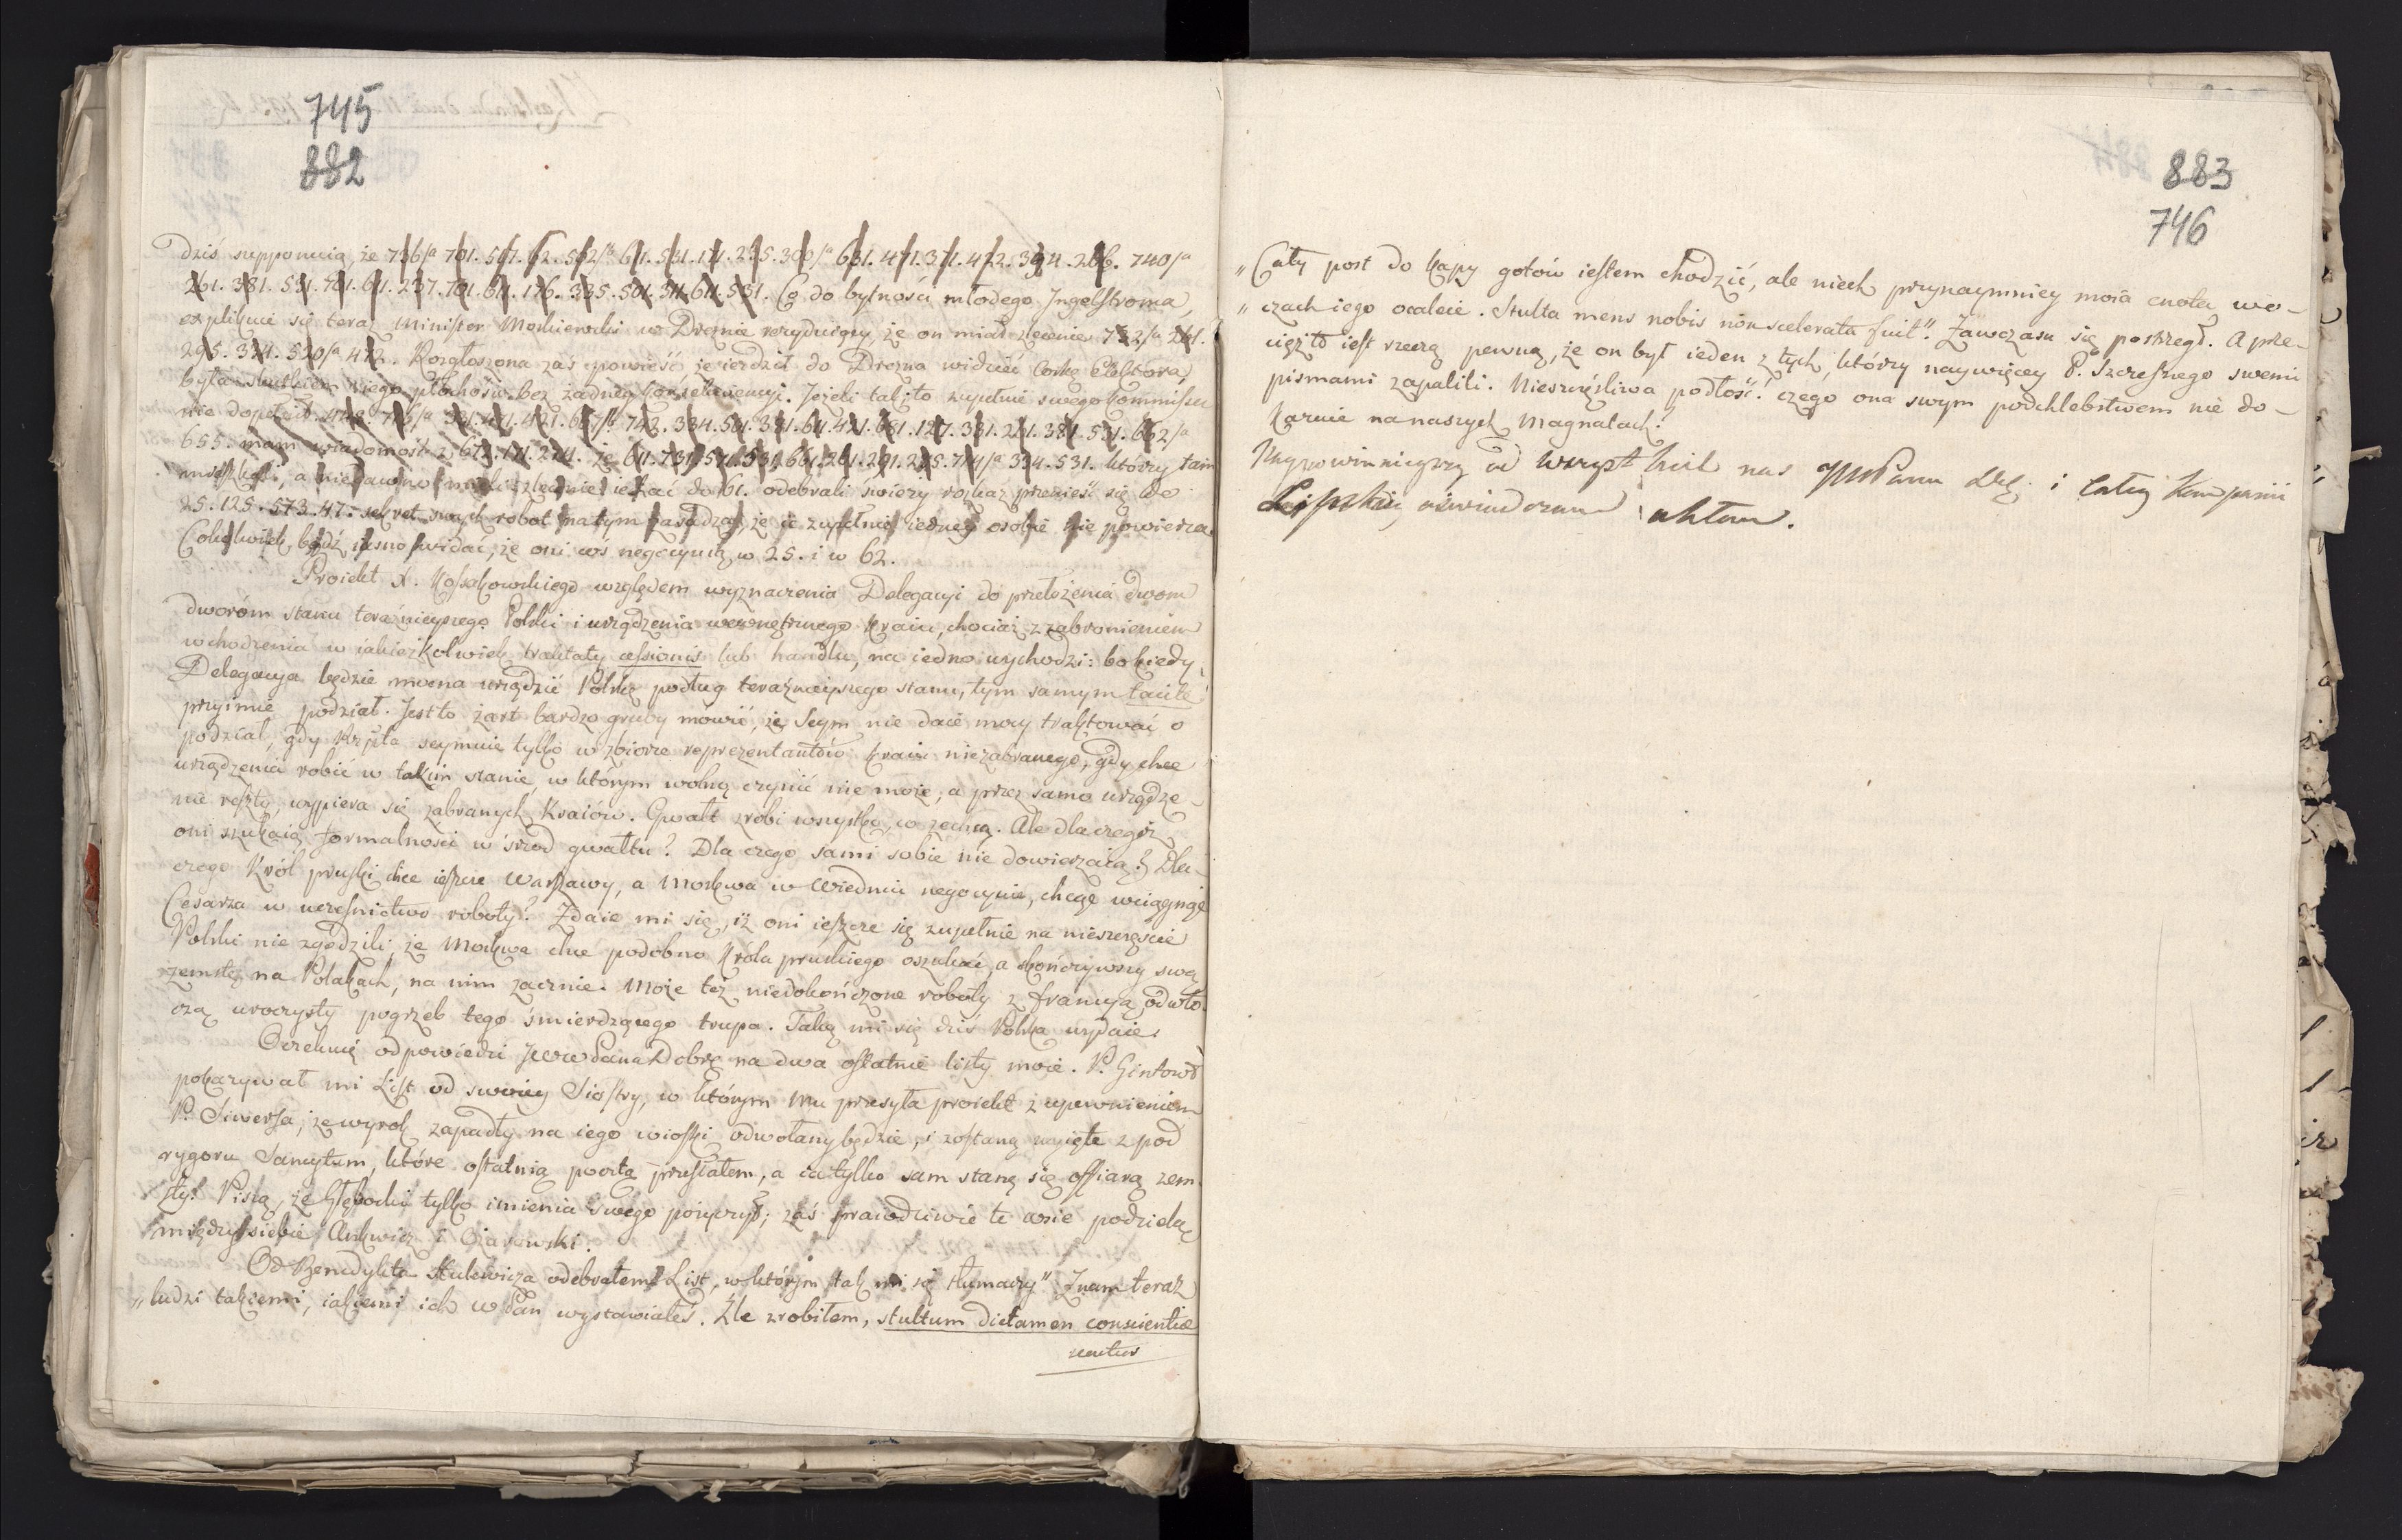 745
882
dziś supponuią, że 736/a 701. 507. 62. 502/a 611. 531. 171. 235. 300/a 631. 471. 371. 472. 394. 266. 740/a
261. 381. 531. 701. 611. 237. 701. 611. 176. 335. 501. 511. 611. 531. Co do bytności młodego Ingelstroma,
explikuie się teraz Minister Moskiewski w Dreznie rezyduiący, że on miał zlecenie 732/a 261.
295. 331. 530/a 472. Rozgłoszona zaś powieść że ieździł do Drezna widzieć Corkę Elektora,
była skutkiem iego płochości bez żadney konsekwencyi. Jeżeli tak, to zupełnie swego kommissu
nie dopełnił.
655. mam wiadomość z 672. 171. 271. że 611. 731. 571. 531. 661. 261. 291. 225. 714/a 334. 531. którzy tam
mieszkali, a niedawno mieli zlecenie iechać do 61. odebrali świeży rozkaz przenieść się do
25. 125. 573. 47. sekret swych robot na tym zasadzą, że ie zupełnie iedney osobie nie powierza.
Cokolwiek bądź iasno widać, że oni coś negocyuią w 25. i w 62.
Proiekt X. Kossakowskiego względem wyznaczenia Delegacyi do przełożenia dwom
dworóm stanu teraźnieyszego Polski i urządzenia wewnętrznego kraiu, chociaż z zabronieniem
wchodzenia w iakieżkolwiek traktaty cessionis lub handlu, na iedno wychodzi: bo kiedy
Delegacya będzie mocna urządzić Polskę podług teraźnieyszego stanu, tym samym tacite
przyimie podział. Jest to żart bardzo gruby mówić, że Seym nie daie mocy traktować o
podział, gdy Rzplta seymuie tylko w zbiorze reprezentantów kraiu niezabranego, gdy chce
urządzenia robić w takim stanie, w którym wolną czynić nie może, a przez samo urządze-
nie reszty, wypiera się zabranych Kraiów. Gwałt zrobi wszystko, co zechcą. Ale dla czegóż
oni szukaią formalności w śrzod gwałtu? Dla czego sami sobie nie dowierzaią? Dla-
czego Król pruski chce ieszcze Warszawy, a Moskwa w Wiedniu negocyuie, chcąc wciągnąć
Cesarza w uczesnictwo roboty? Zdaie mi się, iż oni ieszcze się zupełnie na nieszczęście
Polski nie zgodzili; że Moskwa chce podobno Króla pruskiego oszukać, a skończywszy swą
zemstę na Polakach, na nim zacznie. Może też niedokończone roboty z francyą odwło-
czą uroczysty pogrzeb tego śmierdzącego trupa. Taką mi się dziś Polska wydaie.
Oczekuię odpowiedzi JWW Pana Dobr. na dwa ostatnie listy moie. P. Gintowt
pokazywał mi List od swoiey Siostry, w którym mu przesyła proiekt z upewnieniem
P. Siwersa, że wyrok zapadły na iego wioski odwołany będzie, i zostaną wyięte z pod
rygoru Sancytum, które ostatnią pocztą przesłałem, a ia tylko sam stanę się offiarą zem-
sty. Piszą, że Głębocki tylko imienia swego pożyczył; zaś prawdziwie te wsie podzielą
między siebie Ankwicz i Ożarowski.
Od Benedykta Hulewicza odebrałem List, w którym tak mi się tłumaczy "Znam teraz
„ludzi takiemi, iakiemi ich W Pan wystawiałeś. Źle zrobiłem, stultum dictamen conscientiæ
883
746
„Cały post do kapy gotów iestem chodzić, ale niech przynaymniey moia cnota w o-
„czach iego ocaleie. Stulta mens nobis non scelerata fuit". Zawczasu się postrzegł. A prze-
cięż to iest rzeczą pewną, że on był ieden z tych, którzy naywięcey P. Szczęsnego swemi
pismami zapalili. Nieszczęśliwa podłość! czego ona swym podchlebstwem nie do-
karuie na naszych Magnatach!
Naypowinnieyszy od wszystkich nas JWPanu Dob. i całey kompanii
Lipskiey oświadczam ukłon.